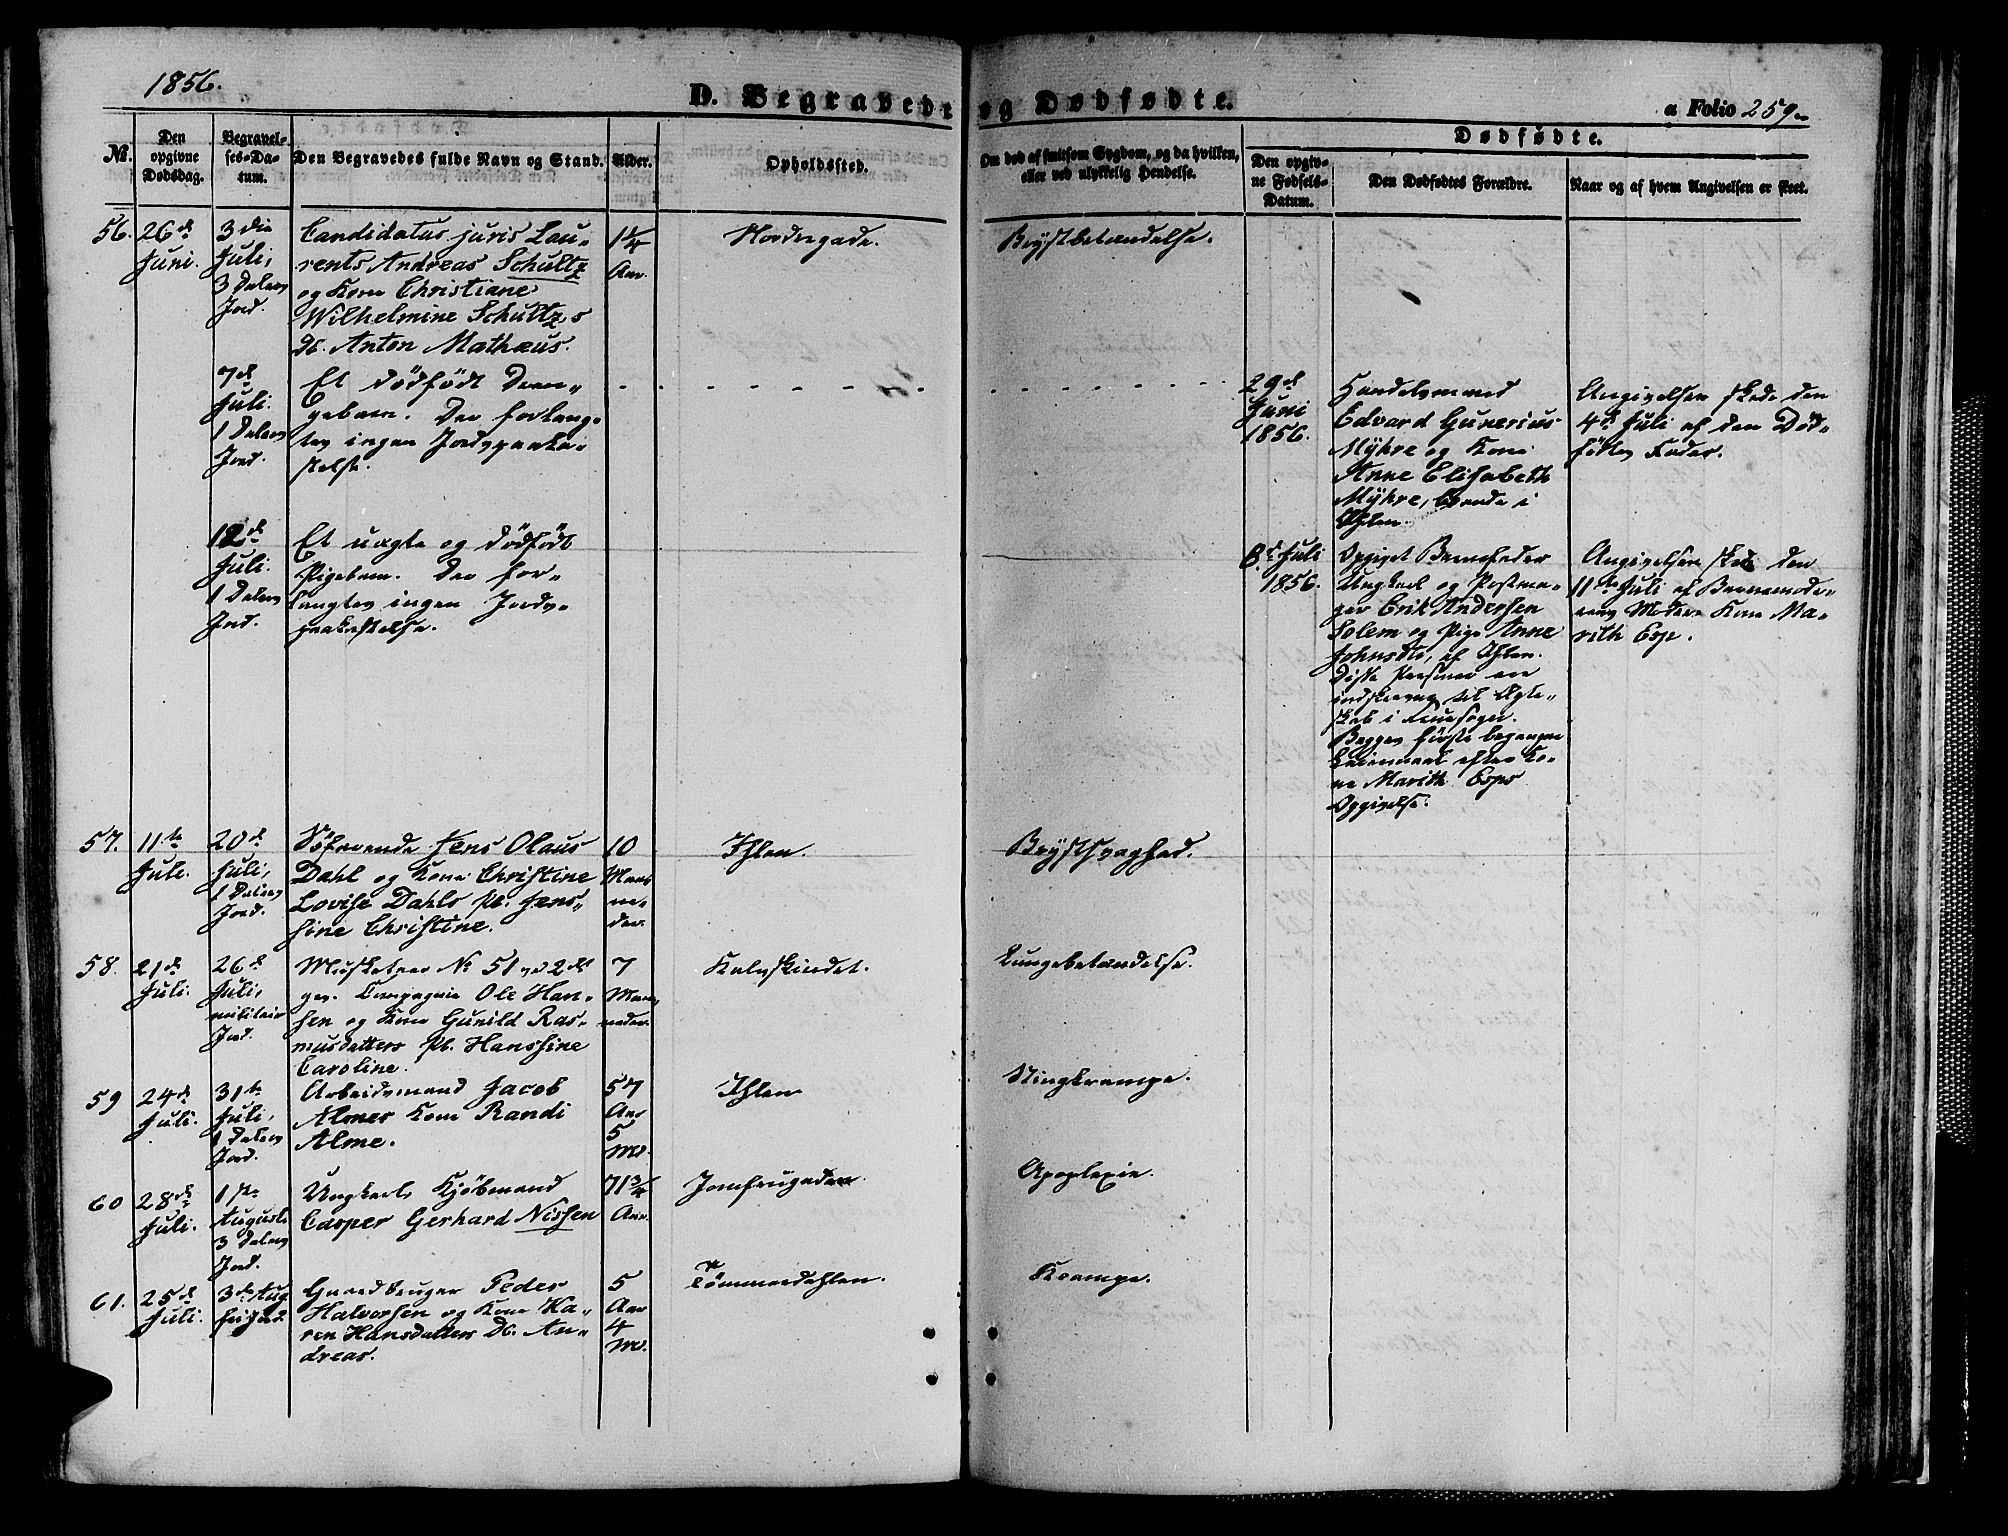 1856.
D. Begravede og Dødfødte.
a Folio 259.
No.
Den opgivne Dødsdag.
Begravelses-Datum.
Den Begravedes fulde Navn og Stand.
Alder.
Opholdssted.
Om død af smitsom Sygdom, og da hvilken,
eller ved ulykkelig Hendelse.
Dødfødte.
Den opgivne Fødsels-Datum.
Den Dødfødtes Forældre.
Naar og af hvem Angivelsen er skeet.
56.
26de
Juni.
3die
Juli,
3 Dalers
Jord.
Candidatus juris Lau-
rents Andreas Schultz
og Kone Christiane
Wilhelmine Schultz's
Db. Anton Mathæus.
1 1/4
Aar
Nordregade.
Brystbetændelse.
7de
Juli.
1 Dalers
Jord.
Et dødfødt Dren-
gebarn. Der forlang-
tes ingen Jordspaaka-
stelse.
29de
Juni
1856.
Handelsmand
Edvard Gunerius
Myhre og Kone
Anne Elisabeth
Myhre, boende i
Ihlen.
Angivelsen skede den
4de Juli af den Død-
fødtes Fader.
12de
Juli.
1 Dalers
Jord.
Et uægte og dødfødt
Pigebarn. Der for-
langtes ingen Jords-
paakastelse.
8de Juli
1856.
Opgivet Barnefader
Ungkarl og Postma-
ger Erik Andersen
Solem og Pige Anne
Johnsdtr, af Ihlen.
Disse Personer ere
indskrevne til Ægte-
skab i Fruesogn.
Begges første begangne
Leiermaal efter Ko-
ne Marith Esps
Opgivelse.
Angivelsen skede den
11te Juli af Barnemode-
rens Moder Kone Ma-
rith Esp.
57.
11te
Juli.
20de
Juli,
1 Dalers
Jord.
Søfarende Jens Olaus
Dahl og Kone Christine
Lovise Dahls Pb. Jens-
sine Christine.
10
Maa-
ne-
der.
Ihlen.
Brystsvaghed.
58.
21de
Juli.
26de
Juli,
militair
Jord.
Musketeer No 51 ved 2det
gev. Compagnie Ole Han-
sen og Kone Gunild Ras-
musdatters Pb. Hanssine
Caroline.
7
Maa-
neder.
Kalvskindet.
Lungebetændelse.
59
24de
Juli.
31te
Juli,
1 Dalers
Jord.
Arbeidsmand Jacob
Almes Kone Randi
Alme.
57
Aar
5
Md.
Ihlen
Stingkrampe.
60
28de
Juli.
1ste
August
3 Dalers
Jord.
Ungkarl, Kjøbmand
Casper Gerhard Nissen
71 3/4
Aar.
Jomfrugaden.
Apoplexie.
61.
25de
Juli.
3de Aug
fri Jord
Gaardbruger Peder
Halvorsen og Kone Ka-
ren Hansdatters Db. An-
dreas.
5
Aar
4
Md.
Tømmerdahlen.
Krampe.